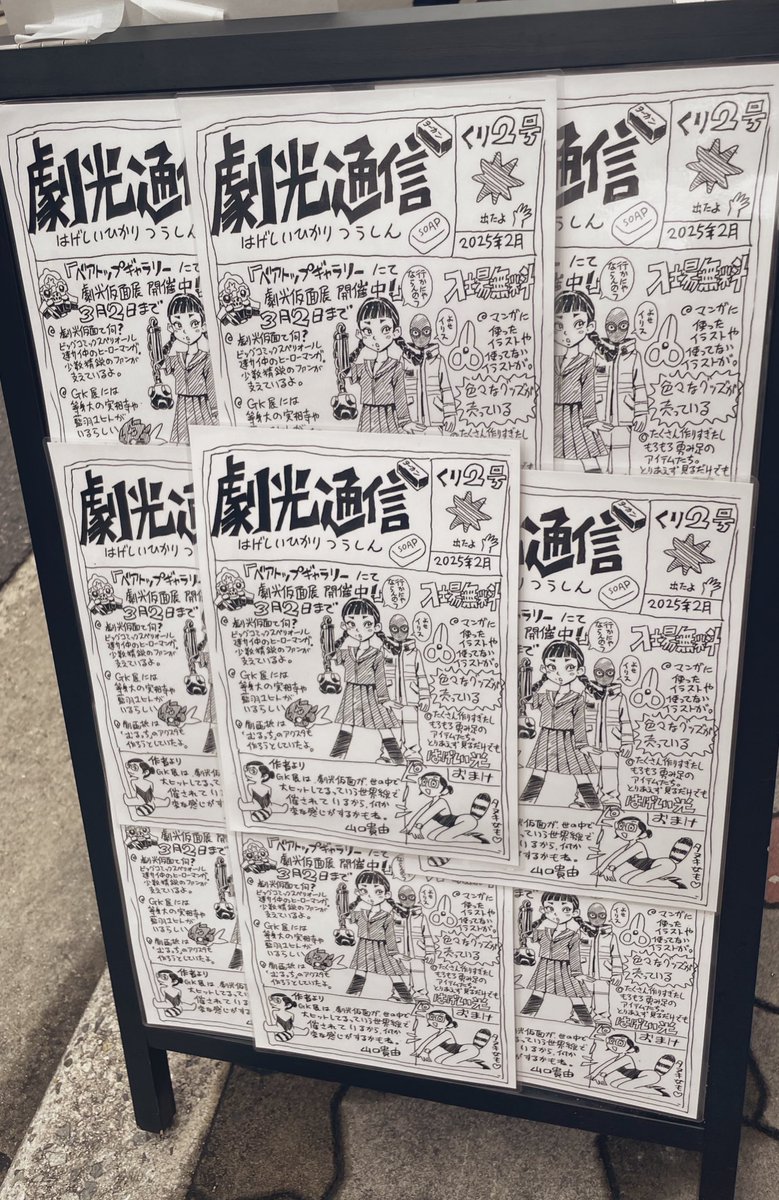 劇光通信
はげしいひかりつうしん
SOAP
くり2号
出たよ
2025年2月
『ベアトップギャラリーにて
劇光仮面展 開催中!』
3月2日まで
入場無料
行かにゃ
ならんの?
よせ
イリス
@劇光仮面て何?
ビッグコミックスペリオール
連載中のヒーローマンガ。
少数精鋭のファンが
支えているよ。
@GK展には
等身大の実相寺や
藍羽ユヒトが
いるらしい
作ろうとしていたよ。
@マンガに
使った
イラストや
使ってない
イラストが。
色々なグッズが
売っている
@たくさん作りすぎたし
もろもろ勇み足の
アイテムたち。
とりあえず見るだけでも
はげしい光
おまけ
作者より
GK展は、劇光仮面が、世の中で
大ヒットしてるっていう世界線で
催されているから、何か
変な感じがするかもね。
山口貴由